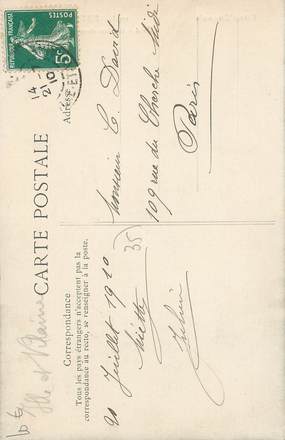 CARTE POSTALE
Correspondance
Tous les pays étrangers n'acceptent pas la
correspondance au recto, se renseigner à la poste.
Adresse
REPUBLIQUE FRANÇAISE
POSTES
5c
14
10
Juillet 1910
35
Monsieur C. David
109 rue du Cherche Midi
Paris
Ille et Vilaine